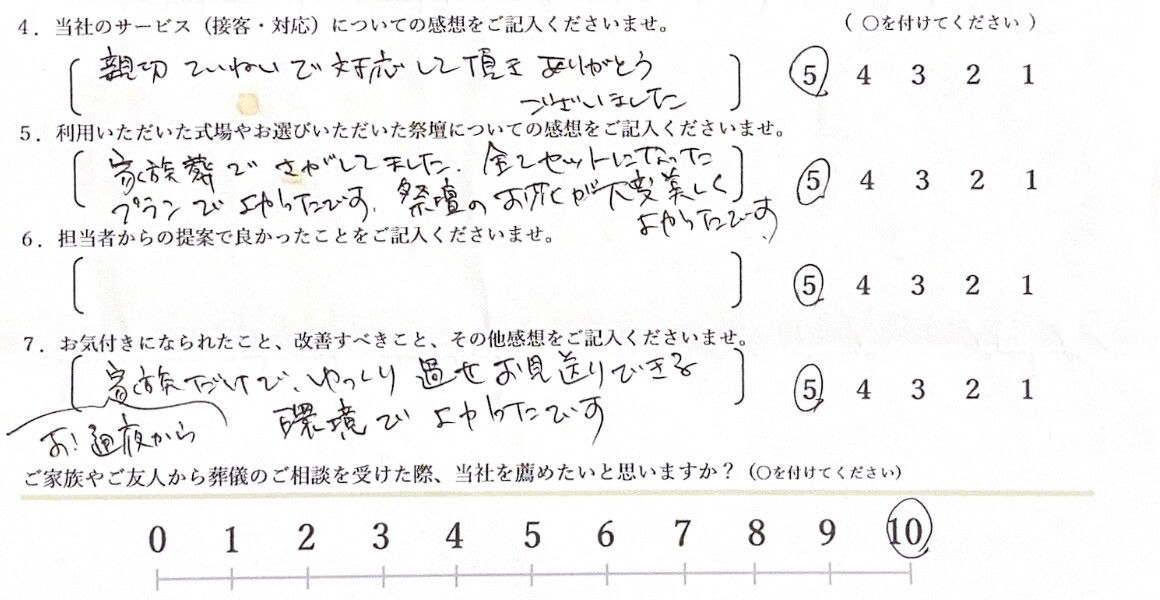 4．当社のサービス（接客・対応）についての感想をご記入くださいませ。
（ ○を付けてください ）
親切 ていねいで 対応して頂き ありがとう
ございました
5 4 3 2 1
5．利用いただいた式場やお選びいただいた祭壇についての感想をご記入くださいませ。
家族葬で さがしてました. 全てセットになった
プランで よかったです. 祭壇のお花が大変美しく
よかったです
5 4 3 2 1
6．担当者からの提案で良かったことをご記入くださいませ。
5 4 3 2 1
7．お気付きになられたこと、改善すべきこと、その他感想をご記入くださいませ。
家族だけで、ゆっくり 過せ お見送りできる
お通夜から 環境で よかったです
5 4 3 2 1
ご家族やご友人から葬儀のご相談を受けた際、当社を薦めたいと思いますか？（○を付けてください）
0 1 2 3 4 5 6 7 8 9 10